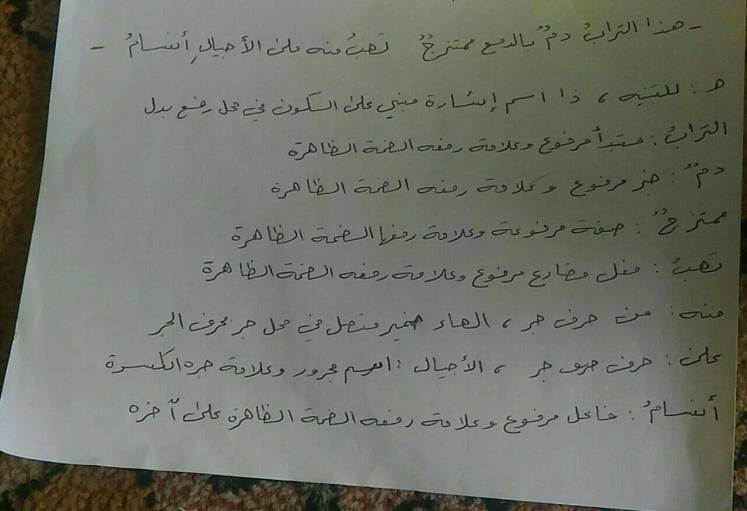 - هذا الترابُ دمٌ بالدمع ممتزجٌ تهبُ منه على الأجيالِ أنسامُ -
هـ : للتنبيه ، ذا اسم إشارة مبني على السكون في محل رفع بدل
الترابُ : مبتدأ مرفوع وعلامة رفعه الضمة الظاهرة
دمٌ : خبر مرفوع وعلامة رفعه الضمة الظاهرة
ممتزجٌ : صفة مرفوعة وعلامة رفعها الضمة الظاهرة
تهبُ : فعل مضارع مرفوع وعلامة رفعه الضمة الظاهرة
منه : من حرف جر ، الهاء ضمير متصل في محل جر بحرف الجر
على : حرف جر ، الأجيال : اسم مجرور وعلامة جره الكسرة
أنسامُ : فاعل مرفوع وعلامة رفعه الضمة الظاهرة على آخره